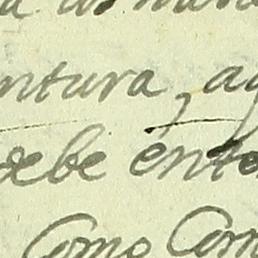 ntura, a
debe ente
Como Com